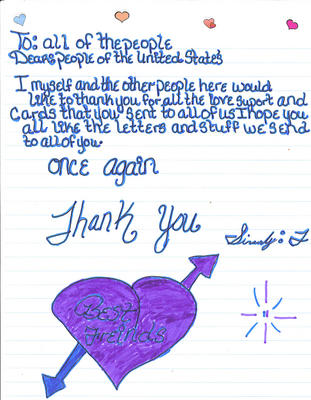 To: all of the people
Dears people of the United States
I myself and the other people here would
like to thank you for all the love suport and
Cards that you sent to all of us I hope you
all like the letters and stuff we send
to all of you.
once again
Thank You
Sincerly: J
Best
Freinds
N